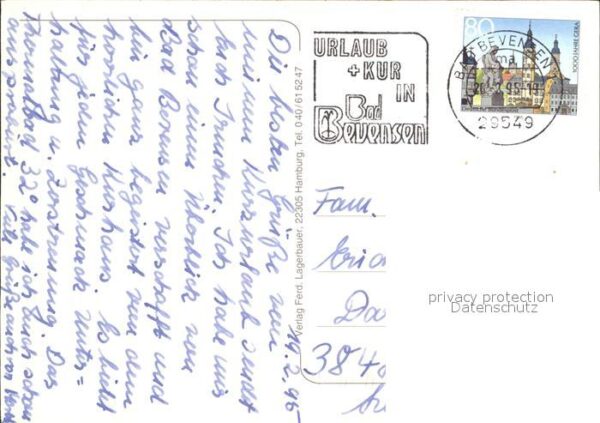 14.2.95
Die besten Grüße von
meinem Kurzurlaub sendet
Euch Ich habe mir
schon einen Überblick von
Bad Bevensen verschafft und
bin ganz begeistert von dem
herrlichen Kurhaus. Es bietet
für jeden Geschmack Unter=
haltung u. Zerstreuung. Das
Thermalbad 32° habe ich auch schon
ausprobiert. Viele Grüße auch von
Verlag Ferd. Lagerbauer, 22305 Hamburg, Tel. 040/61 52 47
URLAUB
+ KUR
IN
Bad
Bevensen
BAD BEVENSEN
29549
80
1000 JAHRE GERA
Fam.
Da
384
privacy protection
Datenschutz